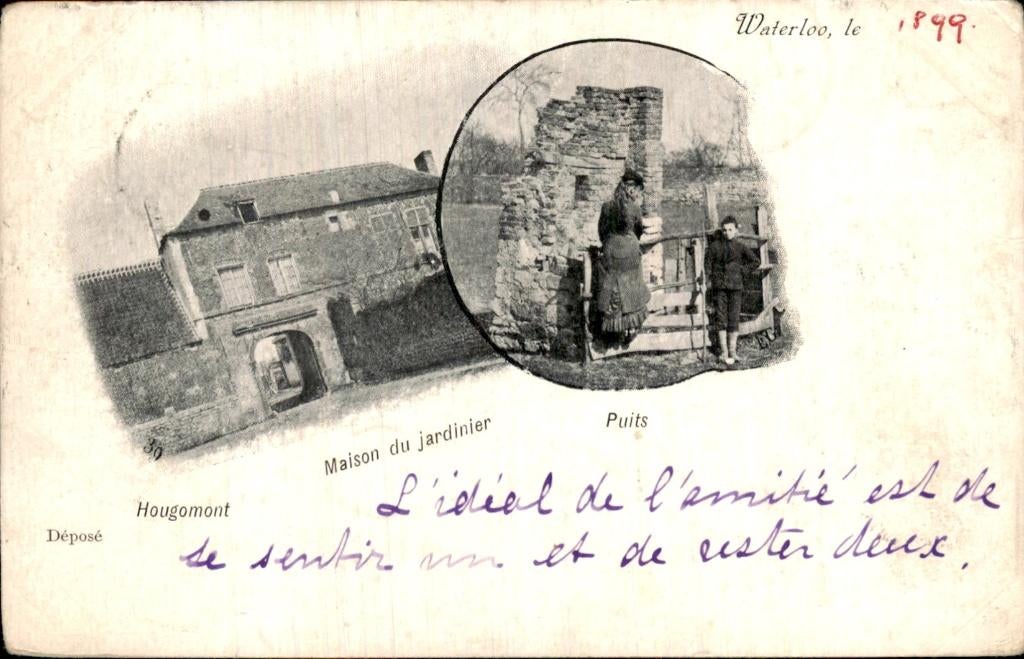 Waterloo, le 1899.
39
Maison du jardinier
Puits
Hougomont
Déposé
L'idéal de l'amitié est de
se sentir un et de rester deux.